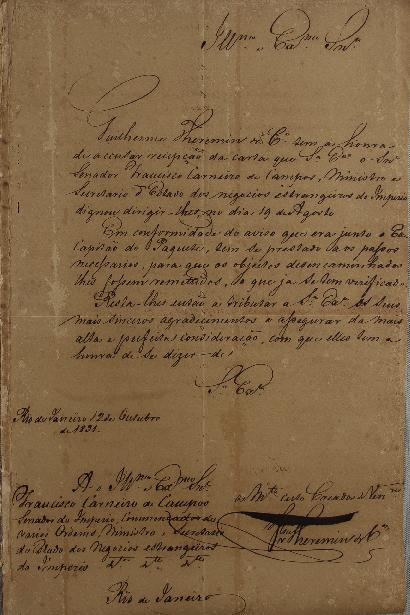 Illmo e Exmo Snr
Guilherme Theremin & Ca tem a honra
de accusar recepção da carta que Sa Exa o Snr
Senador Francisco Carneiro de Campos, Ministro e
Secretario d'Estado dos negocios estrangeiros do Imperio
dignou dirigir-lhes, no dia 19 de Agosto
Em conformidade do aviso que era junto o
Capitão do Paquete, tem se prestado a os passos
necessarios, para que os objectos desencaminhados
lhes fossem remettidos, o que já se tem verificado
Resta-lhes então a tributar a Sa Exa os seus
mais sinceros agradecimentos e assegurar da mais
alta e perfeita consideração, com que elles tem a
honra de se dizer-de
Sa Exa
Rio de Janeiro 12 de Outubro
de 1831.
A o Illmo e Exmo Snr
Francisco Carneiro de Campos
Senador do Imperio, Commendador de
varias Ordens, Ministro e Secretario
do Estado dos Negocios estrangeiros
do Imperio
os Mto Creados
Theremin & Ca
Rio de Janeiro